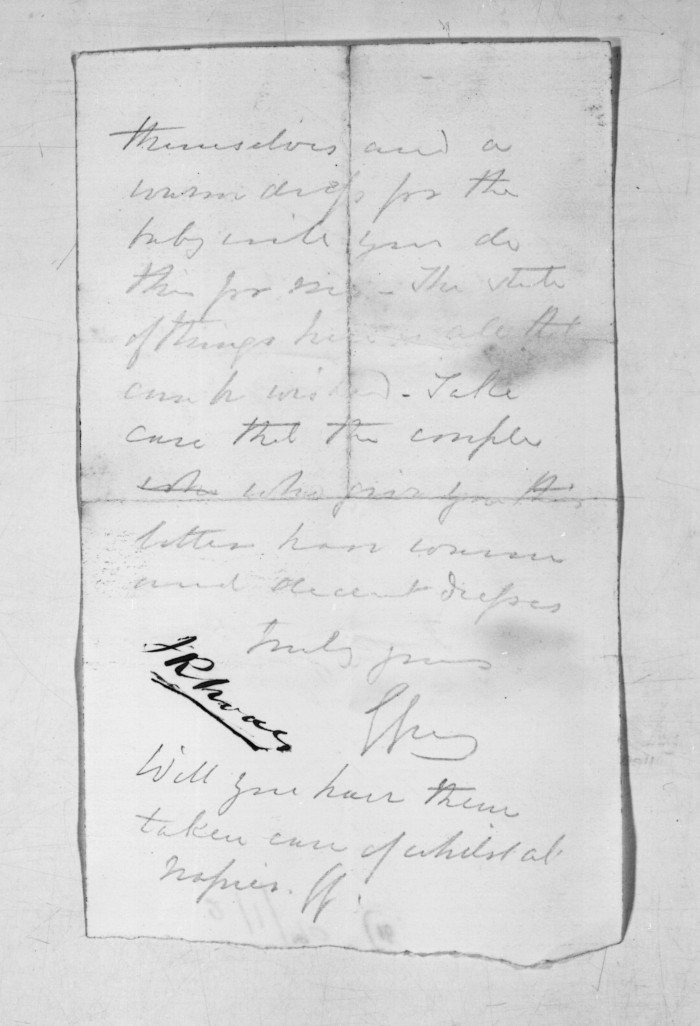 themselves and a
warm dress for the
baby will you do
this for me - The state
of things here is all that
can be wished - Take
care that the couple
who who give you this
letter have warm
and decent dresses
truly yours
J Rhodes
Will you have them
taken care of whilst at
Napier. G.